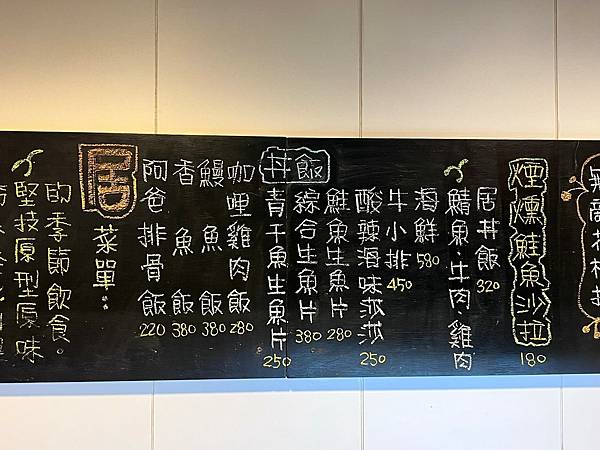 的季節飲食。
堅技原型原味
居
菜單.
阿爸排骨飯 220
香魚飯 380
鰻魚飯 380
咖哩雞肉飯 280
丼飯
青干魚生魚片 250
綜合生魚片 380
鮭魚生魚片 280
酸辣海味莎莎 250
牛小排 450
海鮮 580
鯖魚.牛肉.雞肉
居丼飯 320
煙燻鮭魚沙拉 180